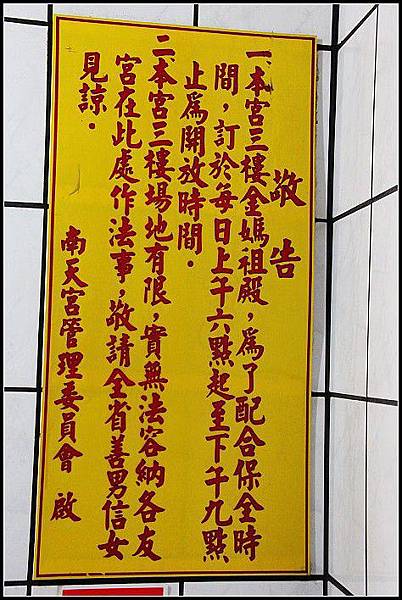 敬告
一、本宮三樓金媽祖殿，為了配合保全時
間，訂於每日上午六點起至下午九點
止為開放時間．
二、本宮三樓場地有限，實無法容納各友
宮在此處作法事，敬請全省善男信女
見諒．
南天宮管理委員會　啟